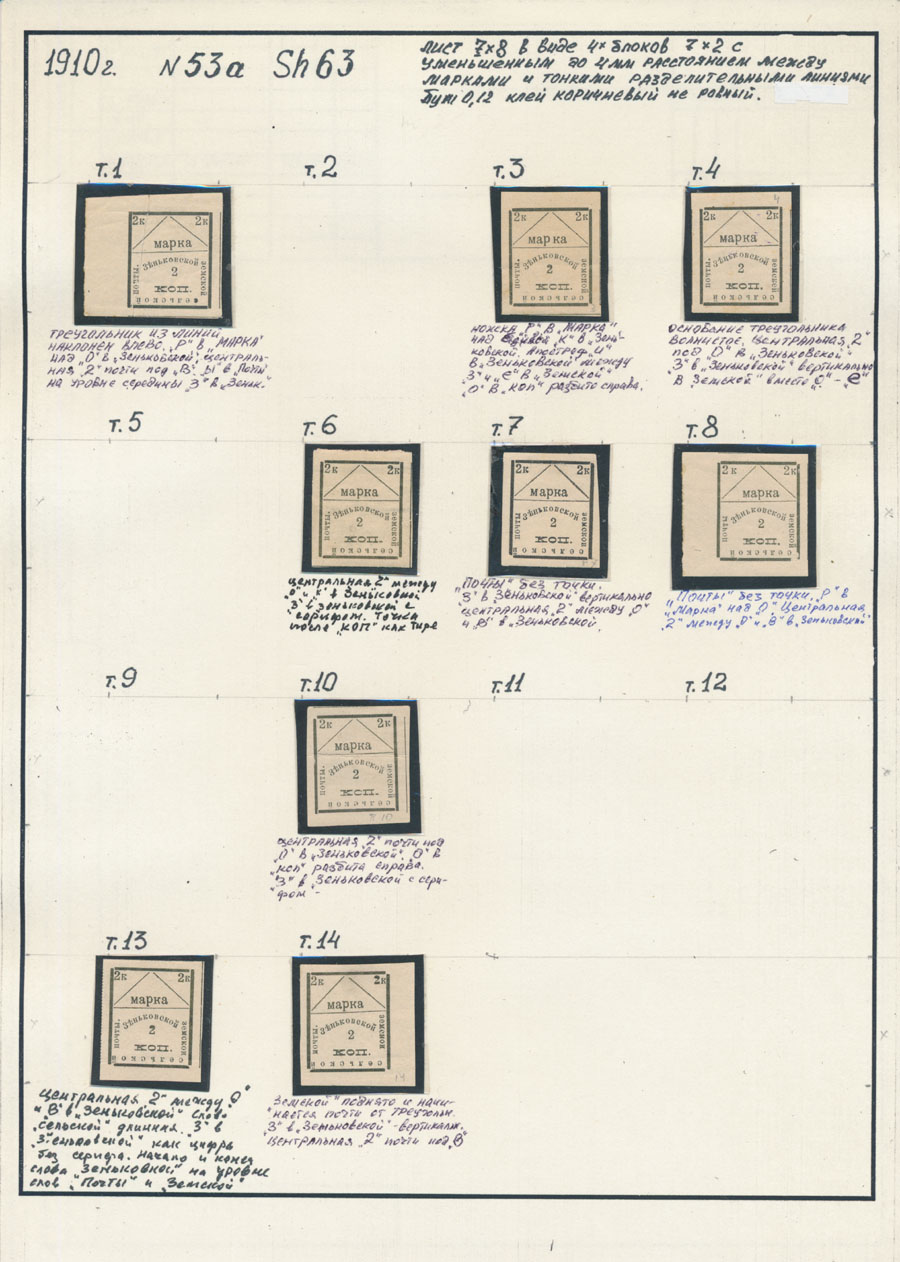 1910г. N 53а Sh 63
лист 7×8 в виде 4× блоков 7×2 с
уменьшенным до 4мм расстоянием между
марками и тонкими разделительными линиями
бум 0,12 клей коричневый не ровный.
т.1 т.2 т.3 т.4
2к 2к
марка
Зѣньковской
почты.
2
земской
КОП.
сельской
треугольник из линий
наклонен влево. „Р" в „МАРКА"
над „О" в „Зеньковской", централь-
ная „2" почти под „В". „Ы" в „Почты"
на уровне середины „З" в „Зеньк."
2к 2к
марка
Зѣньковской
почты.
2
земской
КОП.
сельской
ножка „Р" в „МАРКА"
над „К" в „Зень-
ковской. Апостроф „и"
в „Зеньковской" между
„З" и „е" в „Земской"
„О" в „коп" разбито справа.
2к 2к
марка
Зѣньковской
почты.
2
земской
КОП.
сельской
основание треугольника
волнистое. Центральная „2"
под „О" в „Зеньковской"
„З" в „Зеньковской" вертикально
в „Земской" вместо „О" - „е"
т.5 т.6 т.7 т.8
2к 2к
марка
Зѣньковской
почты.
2
земской
КОП.
сельской
центральная „2" между
„О" и „К" в „Зеньковской"
„З" в „Зеньковской" с
серифом. Точка
после „КОП" как тире
2к 2к
марка
Зѣньковской
почты
2
земской
КОП.
сельской
„Почты" без точки.
„З" в „Зеньковской" вертикально
центральная „2" между „О"
и „В" в „Зеньковской.
2к 2к
марка
Зѣньковской
почты
2
земской
КОП.
сельской
„Почты" без точки. „Р" в
„Марка" над „О". Центральная
„2" между „О" и „В" в „Зеньковской"
т.9 т.10 т.11 т.12
2к 2к
марка
Зѣньковской
почты.
2
земской
КОП.
сельской
центральная „2" почти под
„О" в „Зеньковской". „О" в
„коп" разбита справа.
„З" в „Зеньковской с сери-
фом" -
т.13 т.14
2к 2к
марка
Зѣньковской
почты.
2
земской
КОП.
сельской
Центральная „2" между „О"
и „В" в „Зеньковской" слово
„сельской" длинная. „З" в
„Зеньковской" как цифра
без серифа. Начало и конец
слова „Зеньковской" на уровне
слов „Почты" и „Земской"
2к 2к
марка
Зѣньковской
почты.
2
земской
КОП.
сельской
14
„Земской" поднято и начи-
нается почти от треугольн.
„З" в „Зеньковской" - вертикальн.
Центральная „2" почти под „В"